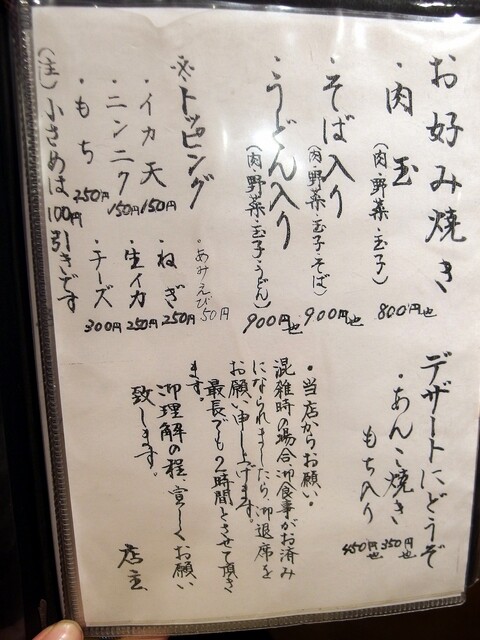 お好み焼き
・肉玉
(肉・野菜・玉子)
800円也
・そば入り
(肉・野菜・玉子・そば)
900円也
・うどん入り
(肉・野菜・玉子・うどん)
900円也
※トッピング
・あみえび 50円
・イカ天 150円
・ねぎ 250円
・ニンニク 150円
・生イカ 250円
・もち 250円
・チーズ 300円
(注)小さめは100円引きです
デザートにどうぞ
・あんこ焼き 350円也
もち入り 450円也
・当店からお願い・
混雑時の場合、御食事がお済み
になられましたら、御退席を
お願い申し上げます。
最長でも2時間とさせて頂き
ます。
御理解の程、宜しくお願い
致します。
店主